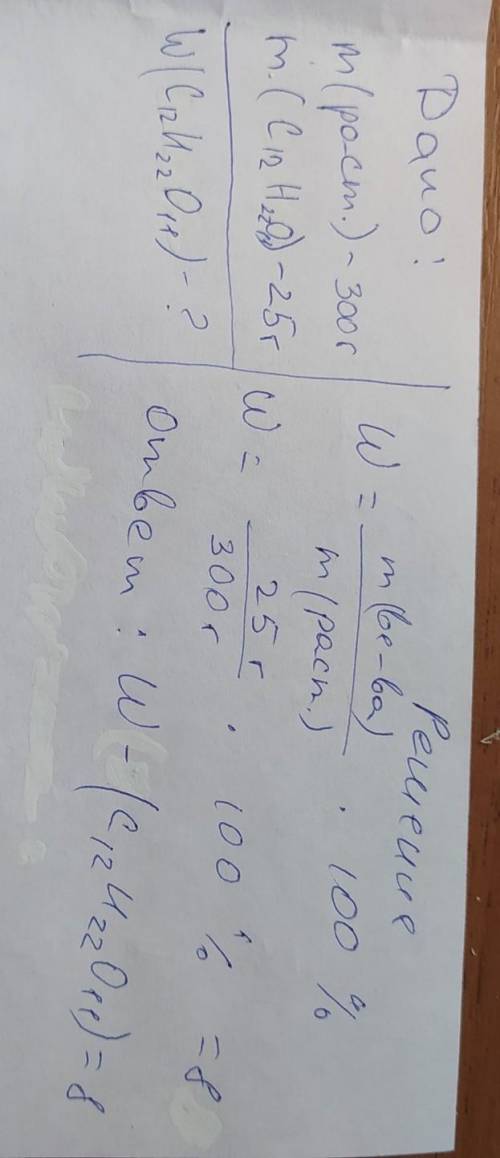 Дано:
m(раст.) - 300г
m.(C12H22O11) - 25г
W(C12H22O11) - ?
Решение
W = m(ве-ва) / m(раст.) · 100 %
W = 25 г / 300 г · 100 % = 8
ответ: W - (C12H22O11) = 8